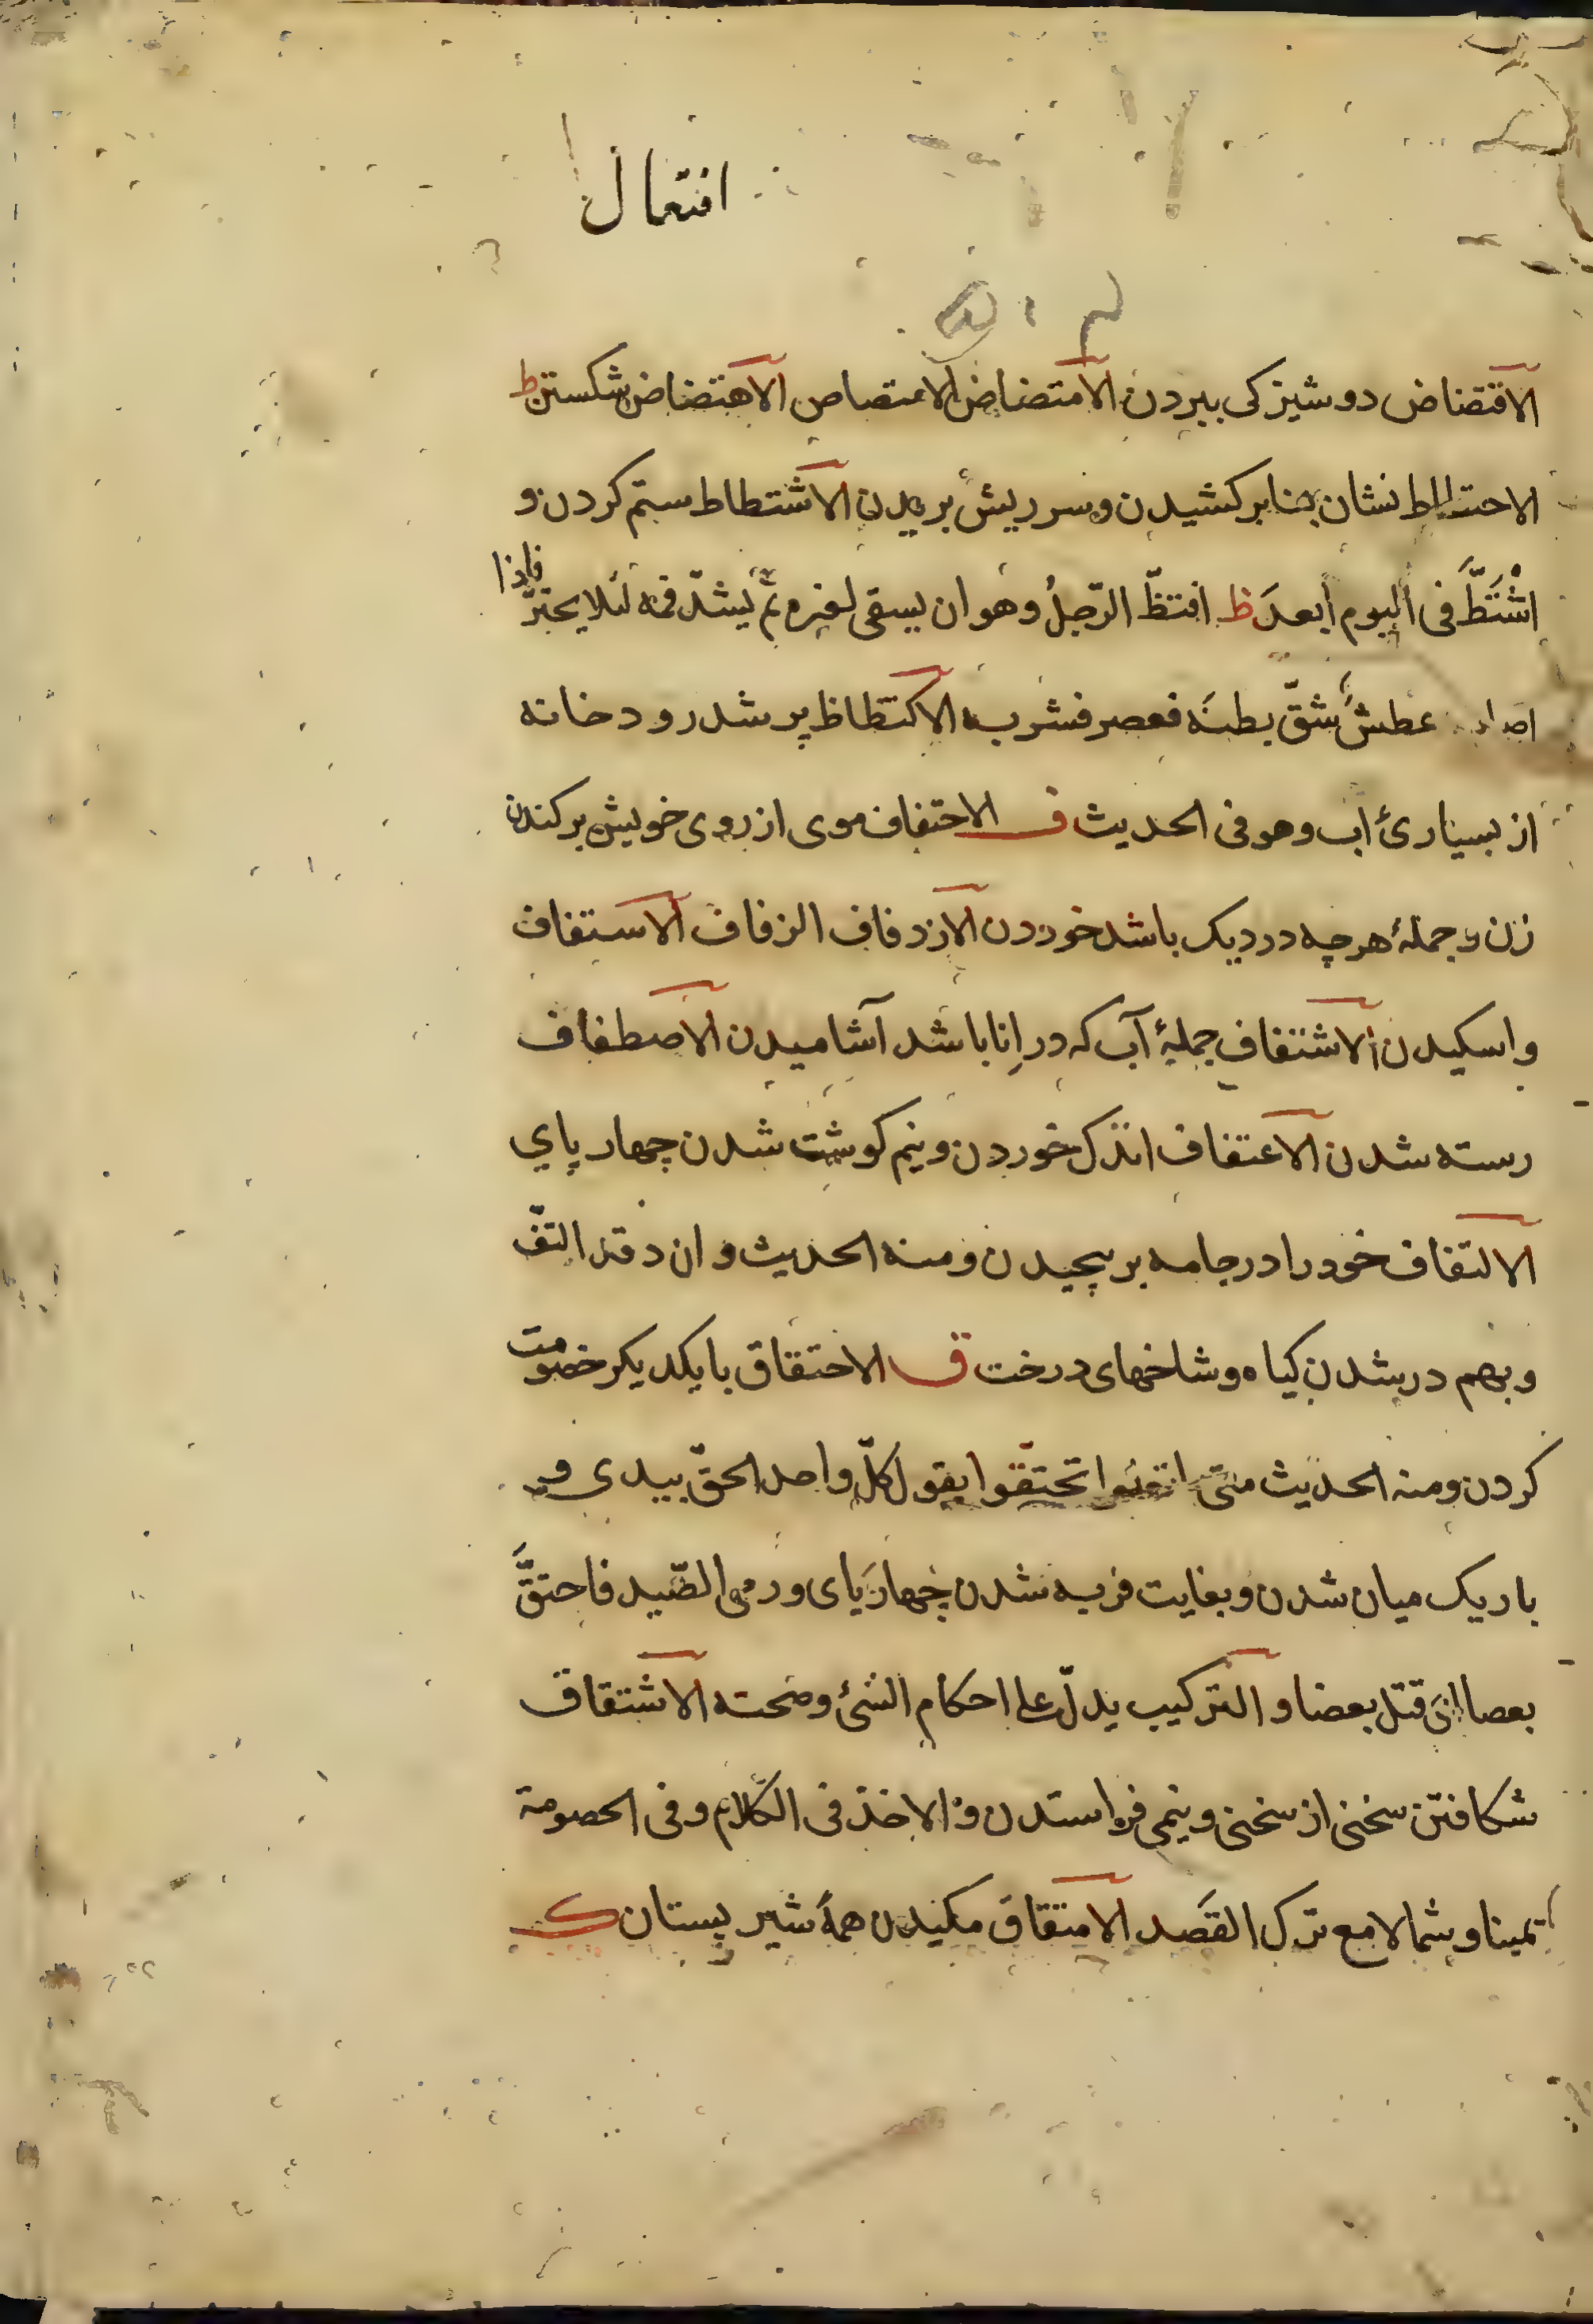 افتعال
الاقتضاض دوشیزکی ببردن الامتضاض الامتصاص الاهتضاض شکستن ط
الاحتطاط نشان بنا برکشیدن و سر ریش بریدن الاشتطاط ستم کردن و
اشْتَطَّ فی البوم ابعدَ ظ افتظّ الرّجلُ وهو ان یسقی لغیره ثمّ یشدّ فمه لئلا یجترّ فاذا
عطشَ شقّ بطنَه فعصر فشربه الاکتظاظ پر شدن رودخانه
از بسیاریٔ آب وهو فی الحدیث ف الاحتفاف موی از روی خویش برکندن
زن و جملهٔ هرچه در دیک باشد خوردن الازدفاف الزفاف الاستفاف
واسکیدن الاشتفاف جملهٔ آب که در اِنا باشد آشامیدن الاصطفاف
رسته شدن الاعتفاف اندک خوردن و نیم کوشت شدن چهار پاي
الالتفاف خود را در جامه برپیچیدن و منه الحدیث و ان رقد التفّ
و بهم در شدن کیاه و شاخهای درخت ق الاحتقاق با یکدیکر خصومت
کردن و منه الحدیث متی تحتقّوا یقول کلّ واحد الحقّ بیدی و
باریک میان شدن و بغایت فربه شدن چهارپای و رمی الصّید فاحتقَّ
بعضا ای قتل بعضا و الترکیب یدلّ علی احکام الشئ وصحته الاشتقاق
شکافتن سخنی از سخنی و نیمی فرا ستدن و الاخذ فی الکلام و فی الخصومة
یمینا و شمالا مع ترک القَصد الامتقاق مکیدن همهٔ شیر پستان ک